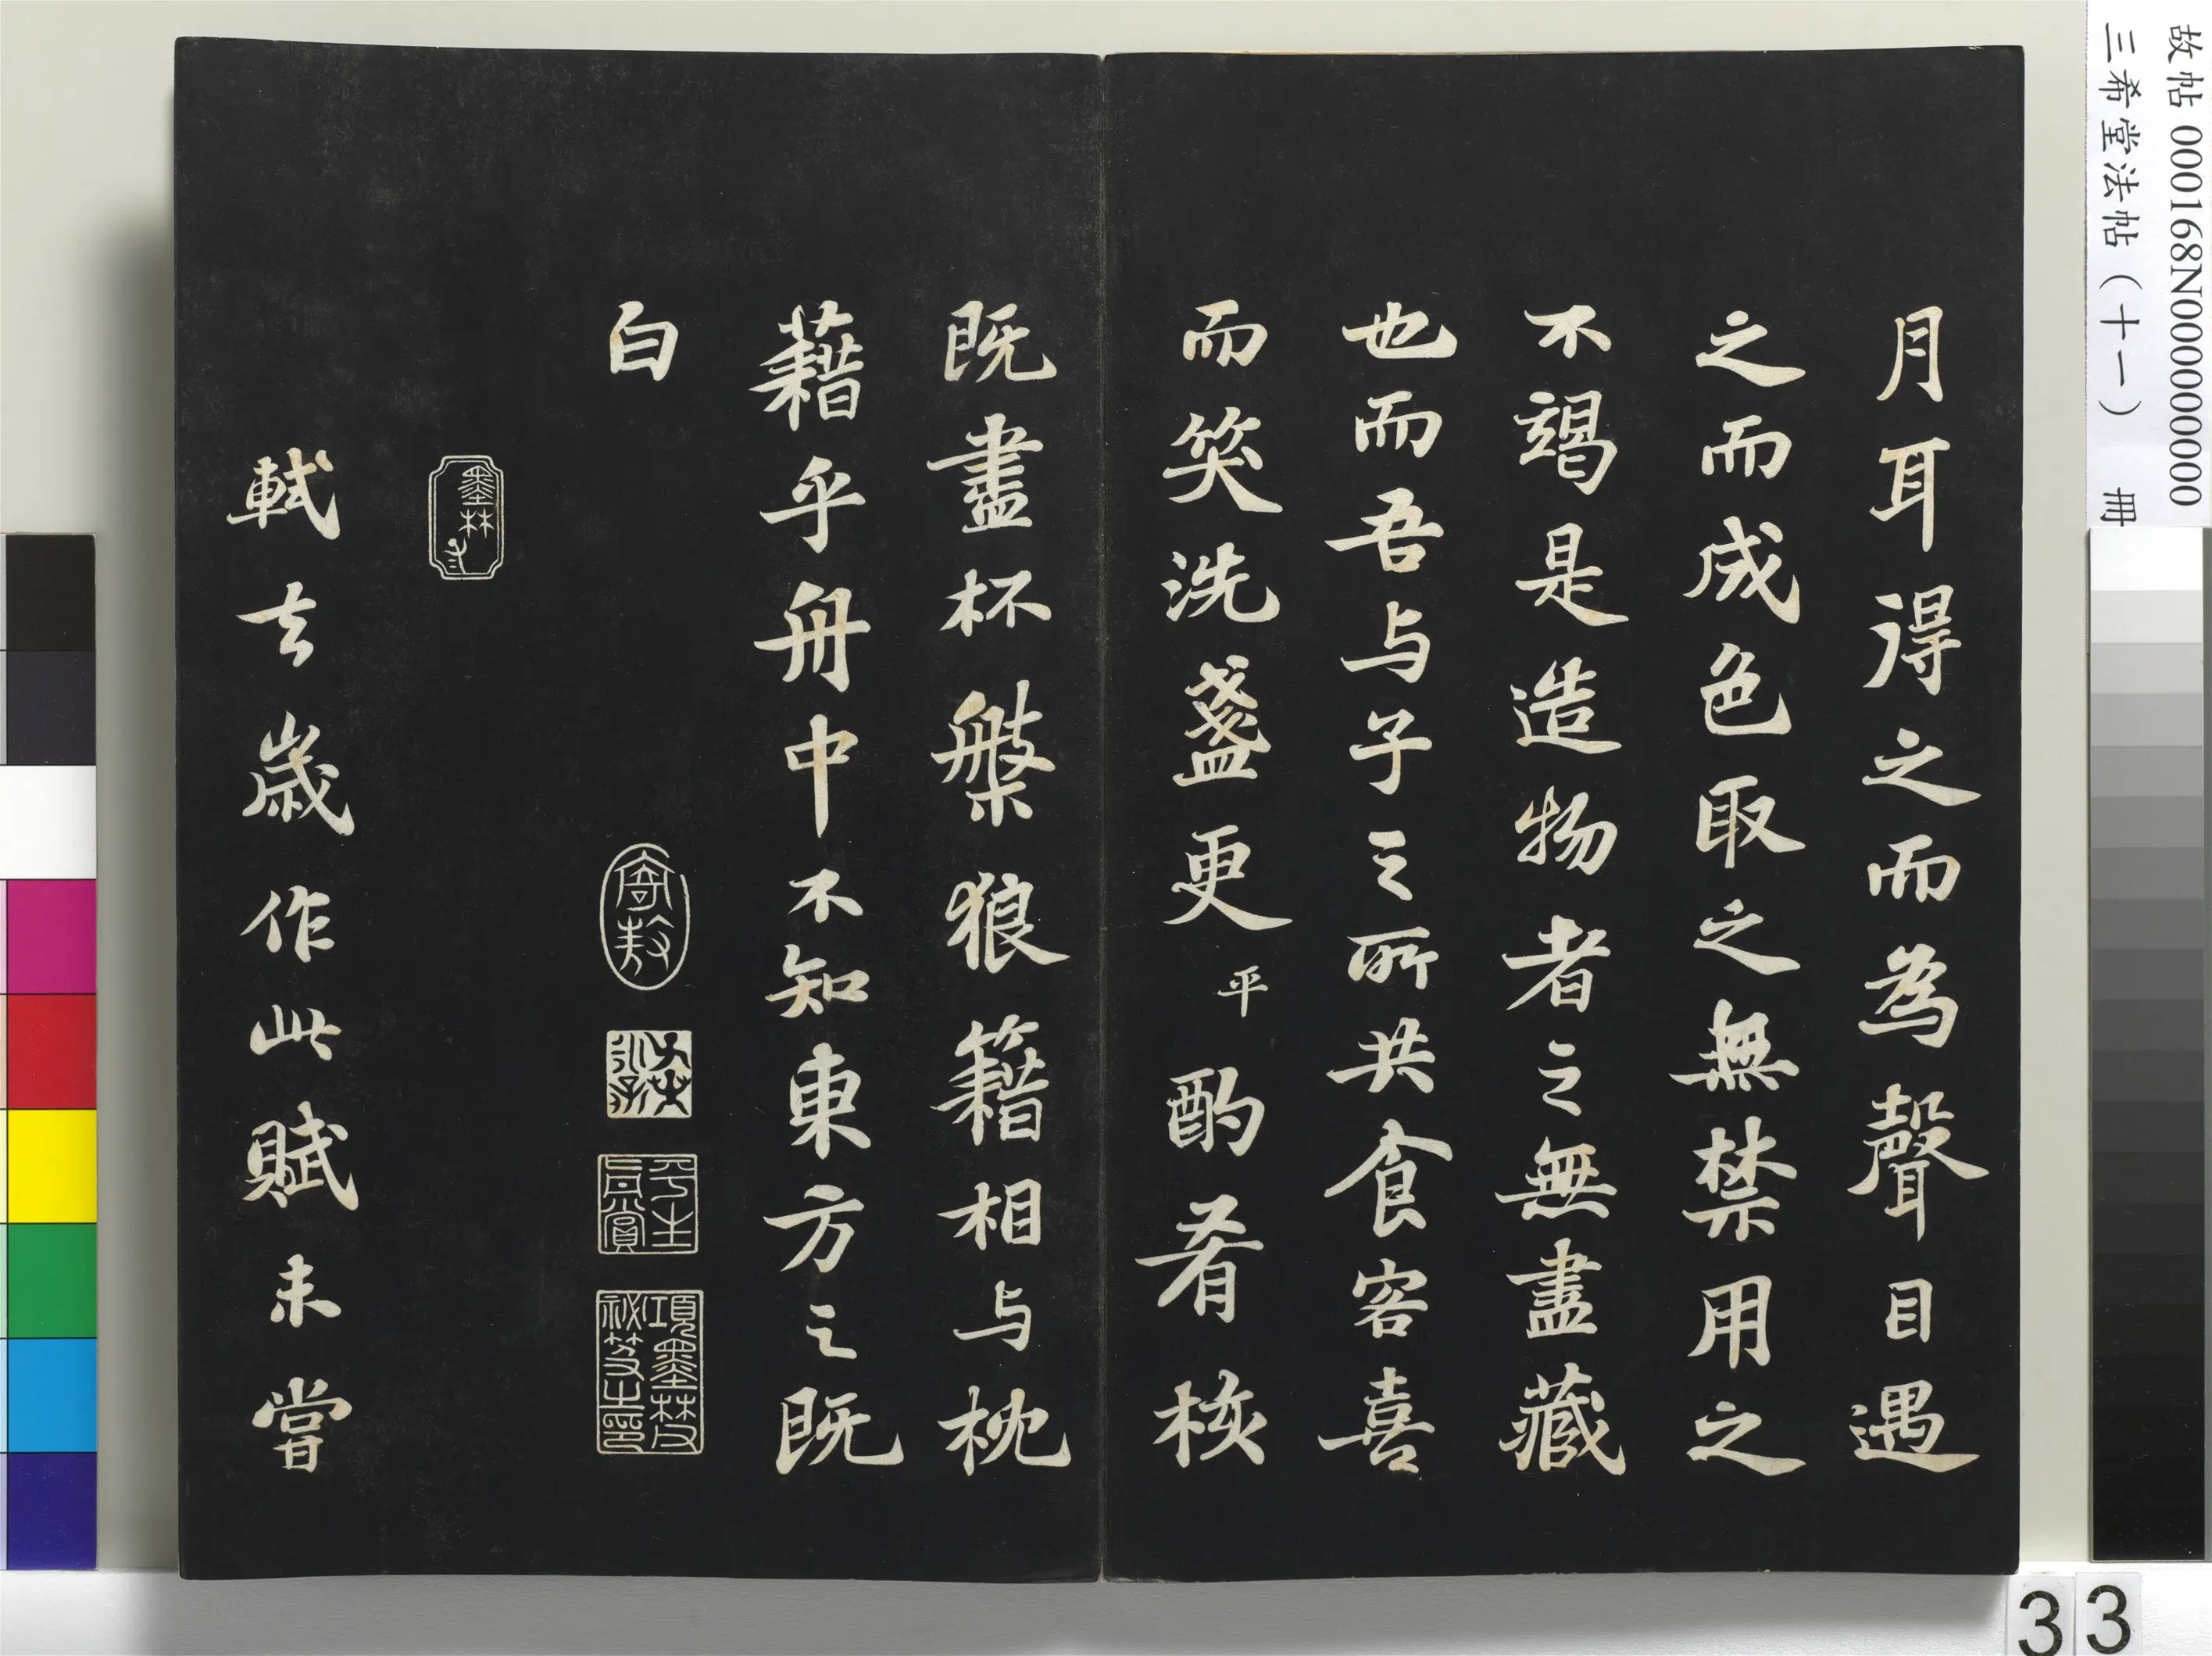 故帖 000168N000000000
三希堂法帖（十一） 冊
月耳得之而為聲目遇
之而成色取之無禁用之
不竭是造物者之無盡藏
也而吾与子之所共食客喜
而笑洗盞更平酌肴核
既盡杯槃狼籍相与枕
藉乎舟中不知東方之既
白
平生真賞
項墨林父祕笈之印
軾去歲作此賦未嘗
33